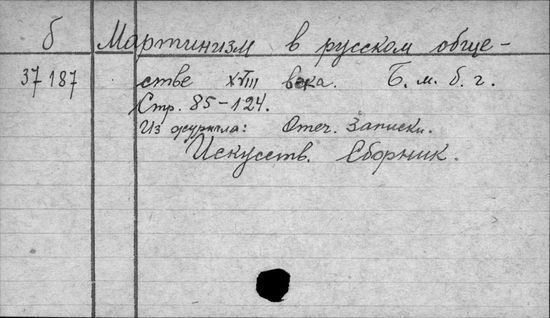 б Мартинизм в русском обще-
37187 стве XVIII века. Б. м. б. г.
Стр. 85-124.
Из журнала: Отеч. Записки.
Искусств. Сборник.